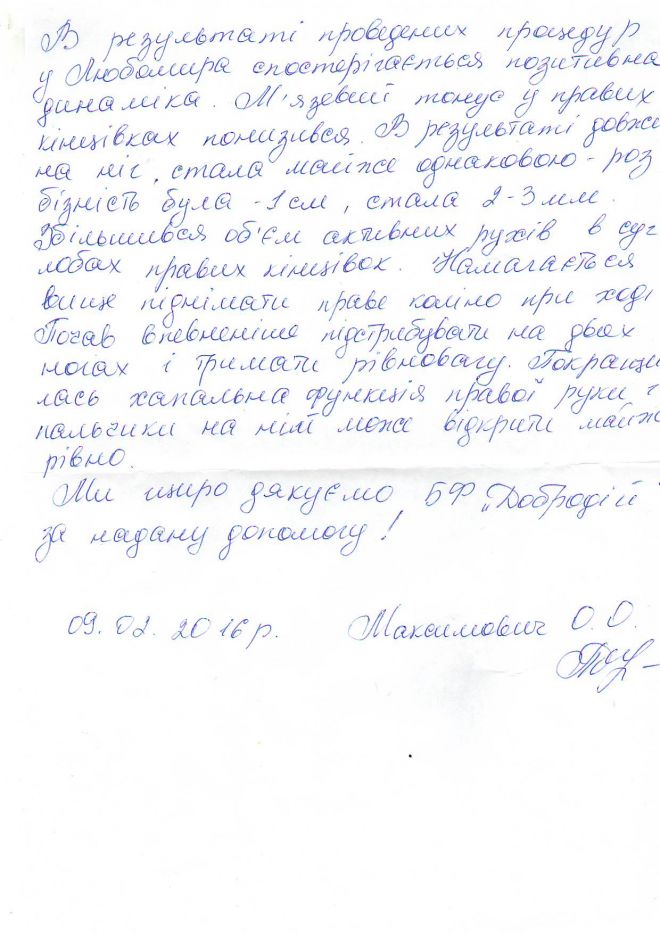 В результаті проведених процедур
у Любомира спостерігається позитивна
динаміка. М'язевий тонус у правих
кінцівках понизився. В результаті довжи
на ніг, стала майже однаковою - роз
бізність була -1 см, стала 2-3 мм.
Збільшився об'єм активних рухів в суг
лобах правих кінцівок. Намагається
вище піднімати праве коліно при ході
Почав впевненіше підстрибувати на двох
ногах і тримати рівновагу. Покращи
лась хапальна функція правої руки і
пальчики на ній може відкрити майж
рівно.
Ми щиро дякуємо БФ „Добродій"
за надану допомогу!
09.02.2016 р. Максимович О.О.